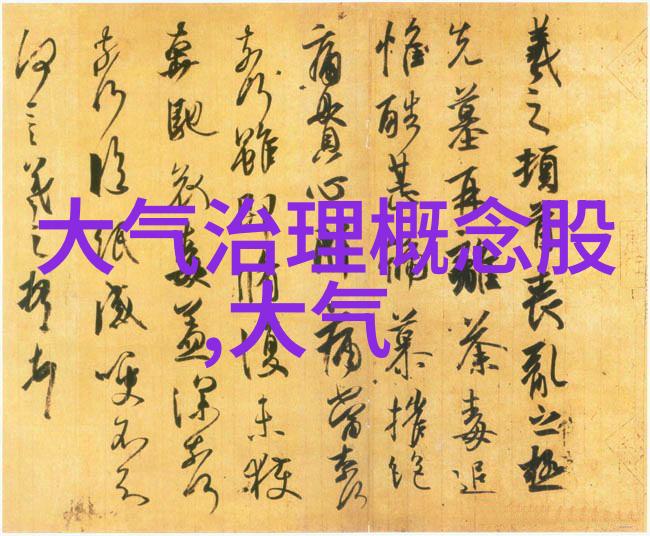 大气治理概念股
,大气
羲之頓首喪亂之極
先墓再離荼毒追
惟酷甚號慕摧絕
痛貫心肝痛當奈何
奈何雖即脩復未獲
奔馳哀毒益深奈何
奈何臨紙感哽不知
何言羲之頓首頓首